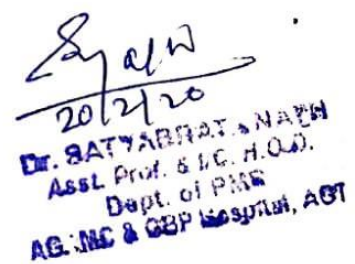 20/2/20
Dr. SATYABRATA NATH
Asst. Prof. & I/C. H.O.D.
Dept. of PMR
AG.MC & GBP Hospital, AGT